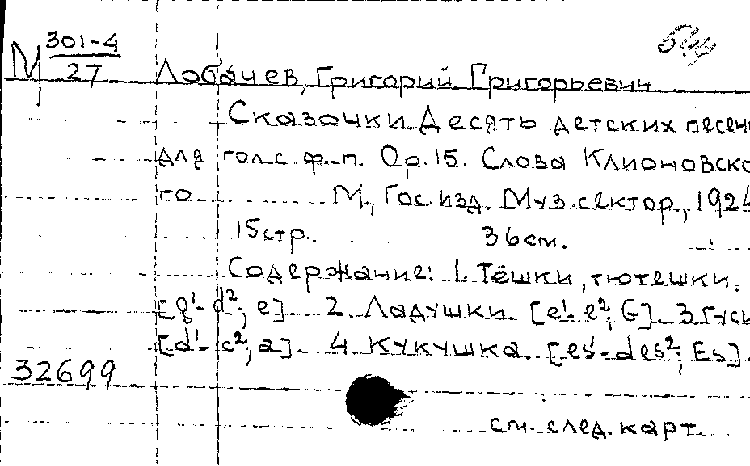 М 301-4
27
Лобачев, Григорий Григорьевич
Сказочки. Десять детских песен
для гол. с ф.-п. Op. 15. Слова Клионовско
го М., Гос. изд. Муз. сектор, 1924
15 стр. 36 см.
Содержание: 1. Тёшки, тютешки.
[g¹-d²; e]. 2. Ладушки. [e¹-e²; G]. 3. Гус
[d¹-c²; a]. 4. Кукушка. [es¹-des²; Es].
32699
см. след. карт.